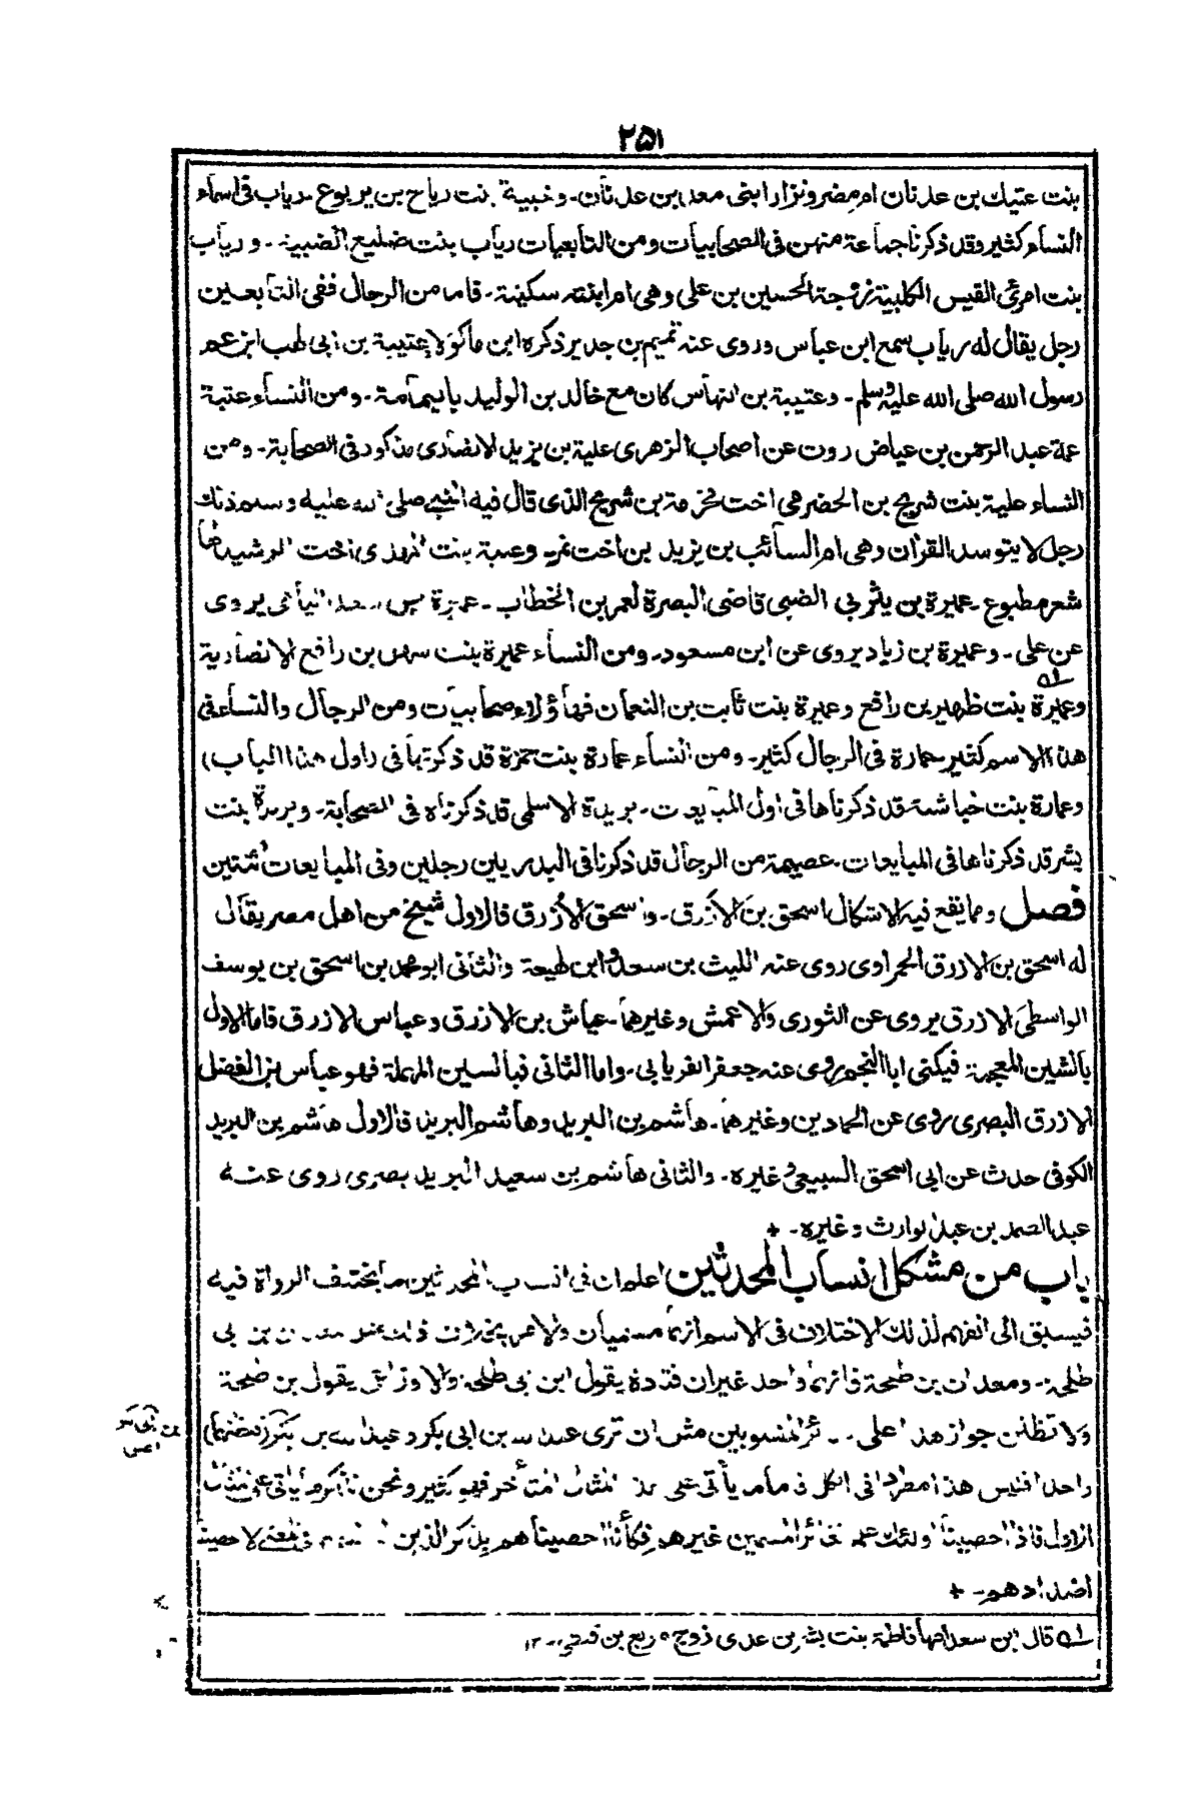 ۲۵۱
بنت عتيك بن عدنان ام مضر ونزار ابنى معد بن عدنان۔ وخبيبة بنت رياح بن يربوع۔ رياب فى اسماء
النساء كثير وقد ذكرنا جماعة منهن فى الصحابيات ومن التابعيات رياب بنت ضليع الضبية۔ ورباب
بنت امرئ القيس الكلبية زوجة الحسين بن على وهى ام ابنته سكينة۔ فاما من الرجال ففى التابعين
رجل يقال له رياب سمع ابن عباس وروى عنه تميم بن جدير ذكره ابن ماكولا عتيبة بن ابى لهب ابن عم
رسول الله صلى الله عليه وسلم۔ وعتيبة بن النهاس كان مع خالد بن الوليد باليمامة۔ ومن النساء عتبة
عمة عبد الرحمن بن عياض روت عن اصحاب الزهرى علية بن يزيد الانصارى مذكور فى الصحابة۔ ومن
النساء علية بنت شريح بن الحضرمى اخت مخرمة بن شريح الذى قال فيه النبى صلى الله عليه وسلم ذلك
رجل لا يتوسد القرآن وهى ام السائب بن يزيد بن اخت نمر وعلية بنت المهدى اخت الرشيد لها
شعر مطبوع۔ عميرة بن يثربى الضبى قاضى البصرة لعمر بن الخطاب۔ عميرة بن سعد اليامى يروى
عن على۔ وعميرة بن زياد يروى عن ابن مسعود۔ ومن النساء عميرة بنت سهل بن رافع الانصارية
وعميرة بنت ظهير بن رافع وعميرة بنت ثابت بن النعمان فهاؤلاء صحابيات ومن الرجال والنساء فى
هذا الاسم كثير۔ عمارة فى الرجال كثير۔ ومن النساء عمارة بنت حمزة قد ذكرتها فى (اول هذا الباب)
وعمارة بنت خباشة قد ذكرناها فى اول المبايعات۔ بريدة الاسلمى قد ذكرناه فى الصحابة۔ وبريدة بنت
بشر قد ذكرناها فى المبايعات۔ عصيمة من الرجال قد ذكرنا فى البدريين رجلين وفى المبايعات ثنتين
فصل ومما يقع فيه الاشكال اسحق بن الازرق۔ واسحق الازرق فالاول شيخ من اهل مصر يقال
له اسحق بن الازرق الحمراوى روى عنه الليث بن سعد وابن لهيعة والثانى ابو محمد بن اسحق بن يوسف
الواسطى الازرق يروى عن الثورى والاعمش وغيرهما۔ عياش بن الازرق وعباس الازرق فاما الاول
بالشين المعجمة فيكنى ابا النجم روى عنه جعفر الفريابى۔ واما الثانى فبالسين المهملة فهو عباس بن الفضل
الازرق البصرى روى عن الحمادين وغيرهما۔ هاشم بن البريد وهاشم البريد فالاول هاشم بن البريد
الكوفى حدث عن ابى اسحق السبيعى وغيره۔ والثانى هاشم بن سعيد البريد بصرى روى عنه
عبد الصمد بن عبد الوارث وغيره۔ +
باب من مشكل انساب المحدثين اعلم ان فى انساب المحدثين ما يختلف الرواة فيه
فيسبق الى الفهم لذلك الاختلاف فى الاسم انهما مسميان ولا
طلحة۔ ومعدان بن طلحة فانهما واحد غير ان قتادة يقول ابن ابى طلحة والاوزاعى يقول بن طلحة
ولا تظنن جواز هذا على المنسوبين مثل ان ترى عبد الله بن ابى بكر وعبد الله بن بكر (فتظنهما)
واحدا فليس هذا مطردا فى الكل فما لم يأتى على هذا المثال المتأخر فهو كثير ونحن نذكر ما ياتى على مثال
الاول فاذا احصينا اولئك غيرهم فكأنا احصيناهم بذكر الذين
اضدادهم۔ +
قال ابن سعد امها فاطمة بنت بشر بن عدى